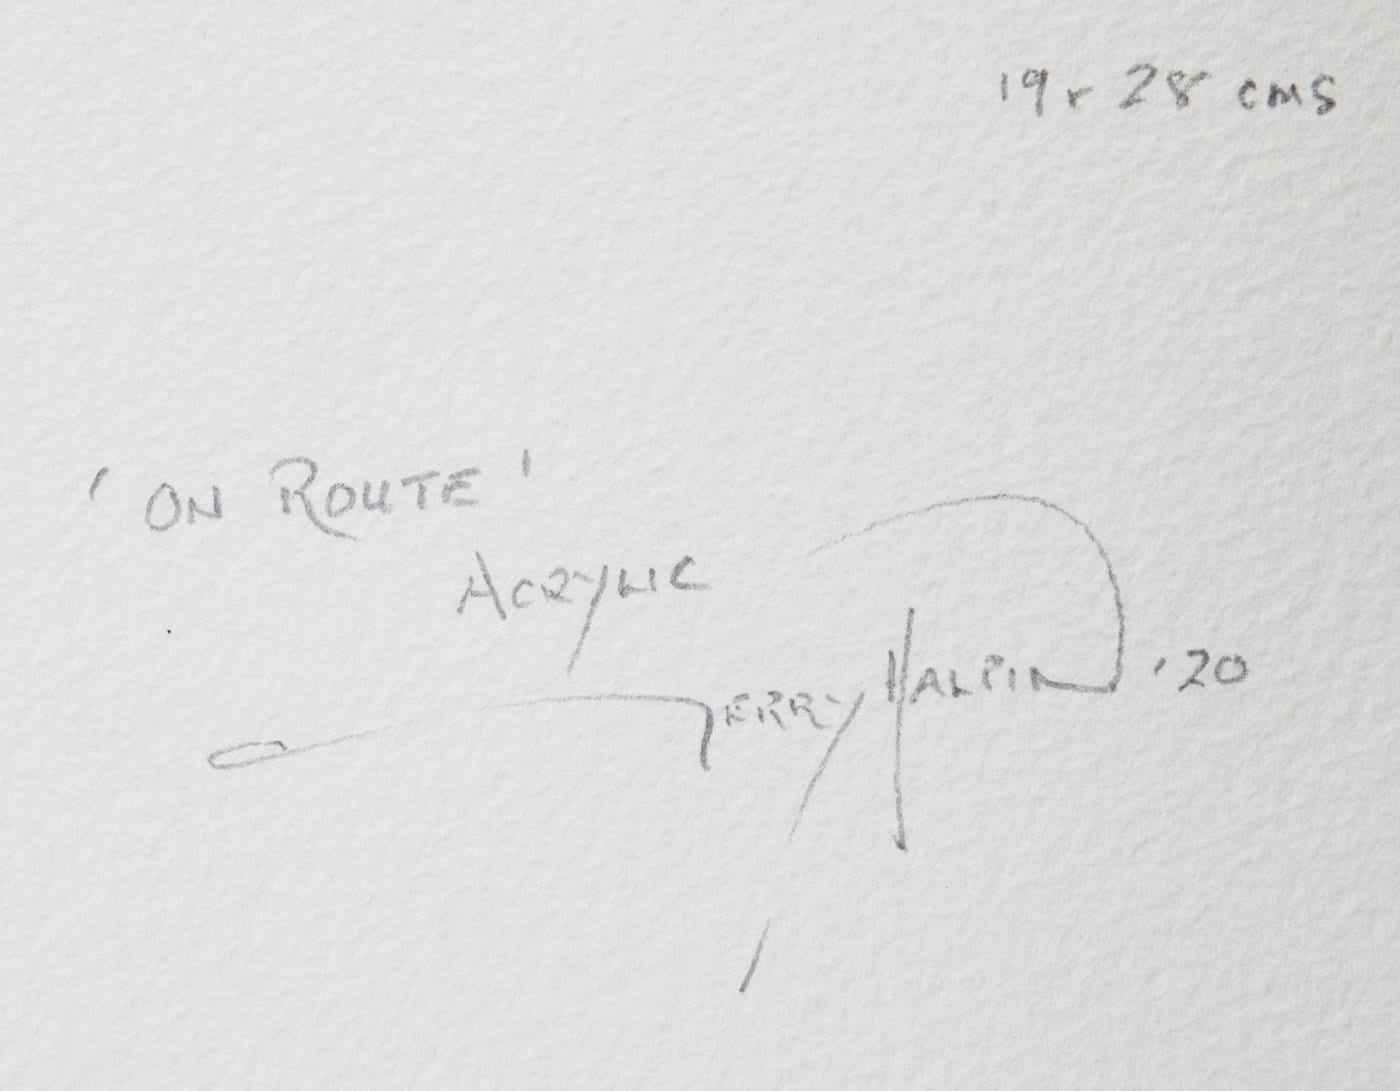 19 x 28 cms
'ON ROUTE'
ACRYLIC
TERRY HALPIN '20